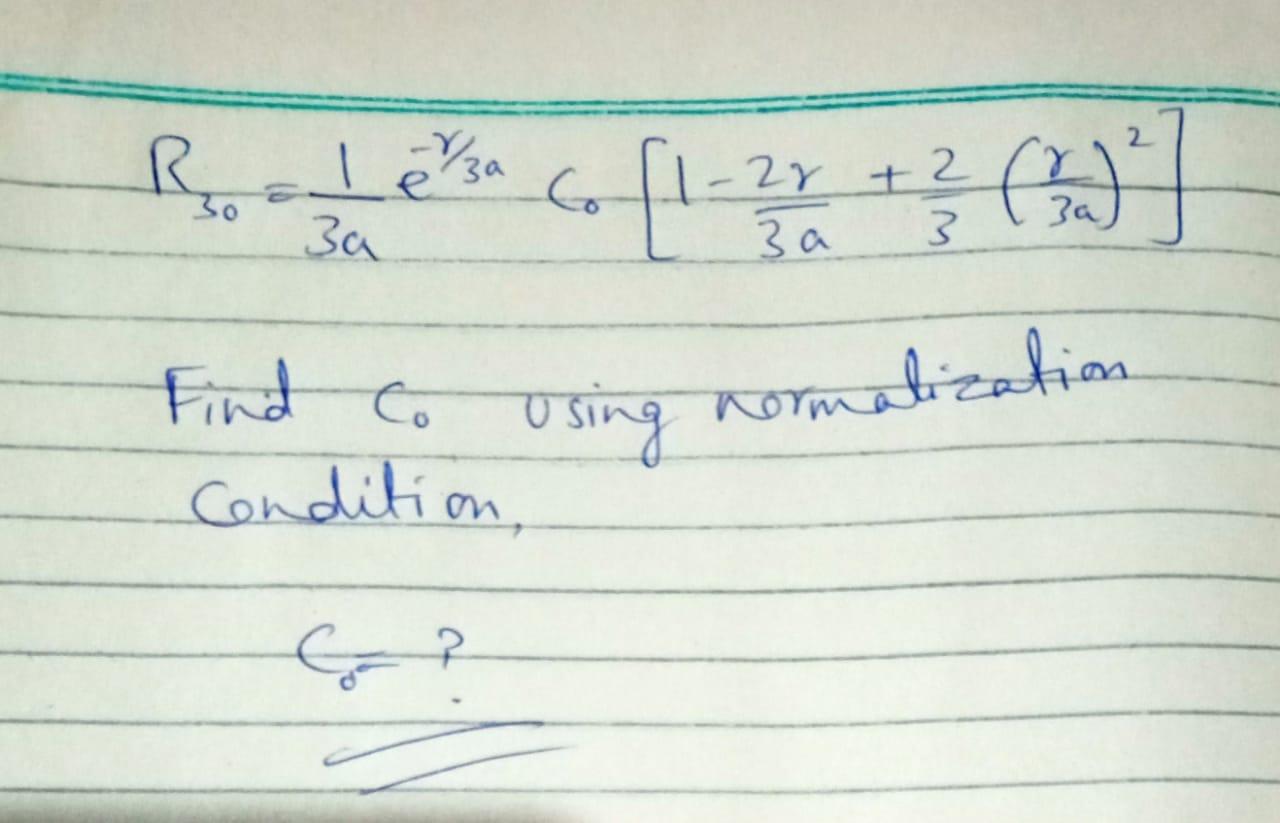 R₃₀ = 1/3a e^(-r/3a) C₀ [1 - 2r/3a + 2/3 (r/3a)²]
Find C₀ using normalization
Condition,
C₀ = ?